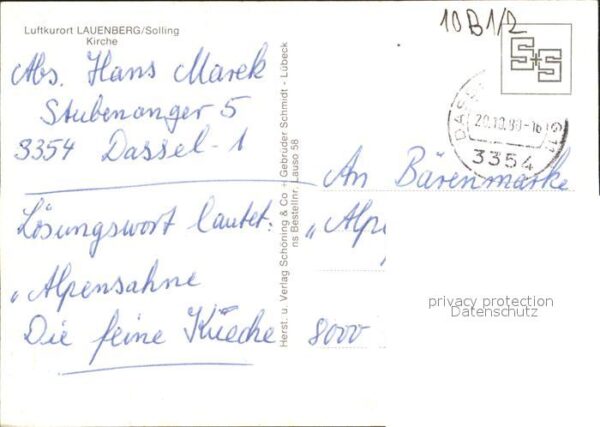 Luftkurort LAUENBERG/Solling
Kirche
10B1/2
S+S
Abs. Hans Marek
Stubenanger 5
3354 Dassel-1
Lösungswort lautet:
"Alpensahne
Die feine Kueche
Herst. u. Verlag Schöning & Co + Gebrüder Schmidt - Lübeck
ns Bestellnr. Lauso 58
DASS
20.10.89-16
3354
An Bärenmarke
"Alp
8000
privacy protection
Datenschutz